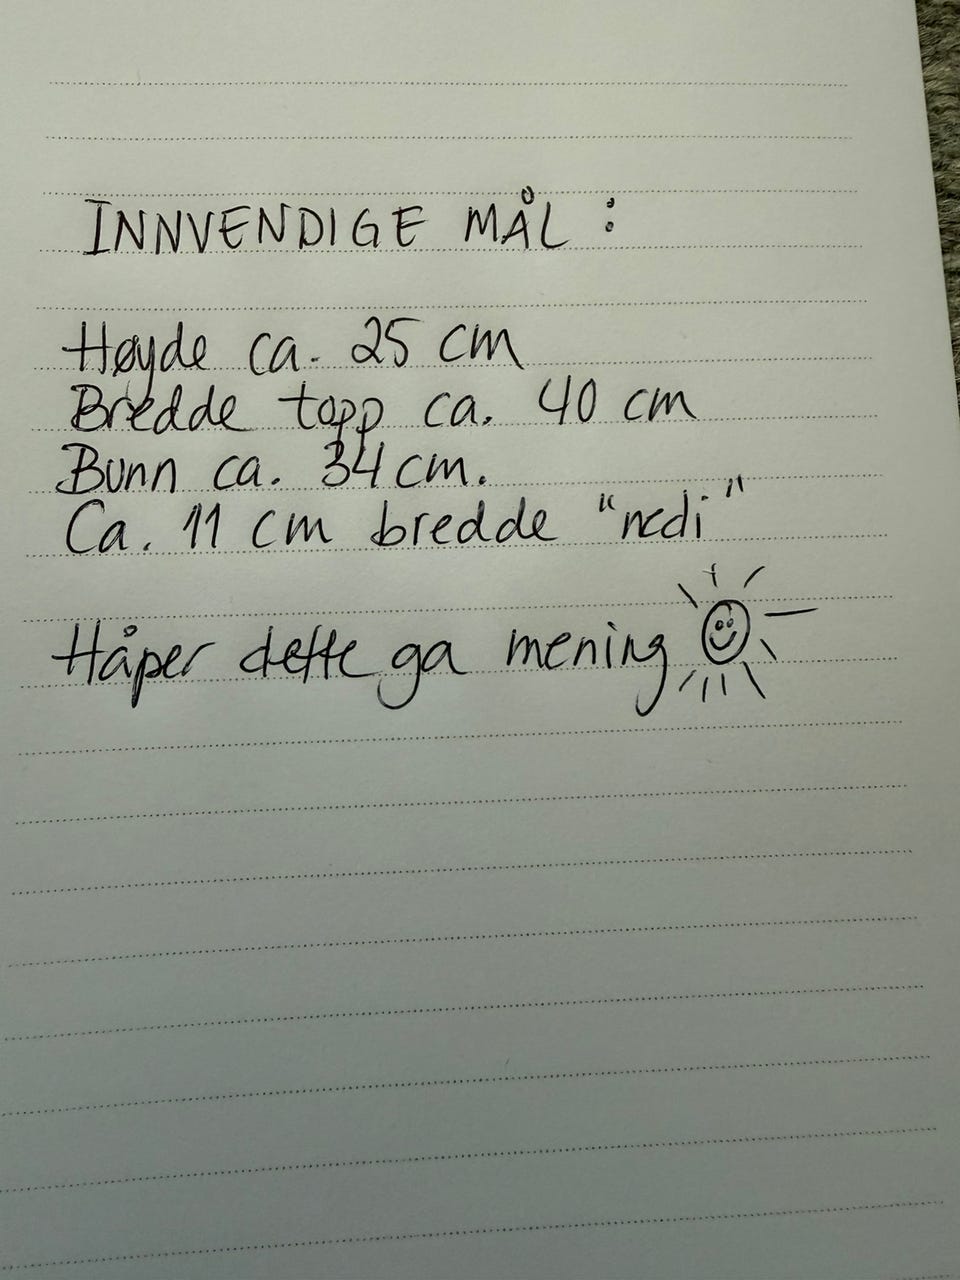 INNVENDIGE MÅL :
Høyde ca. 25 cm
Bredde topp ca. 40 cm
Bunn ca. 34 cm.
Ca. 11 cm bredde "nedi"
Håper dette ga mening